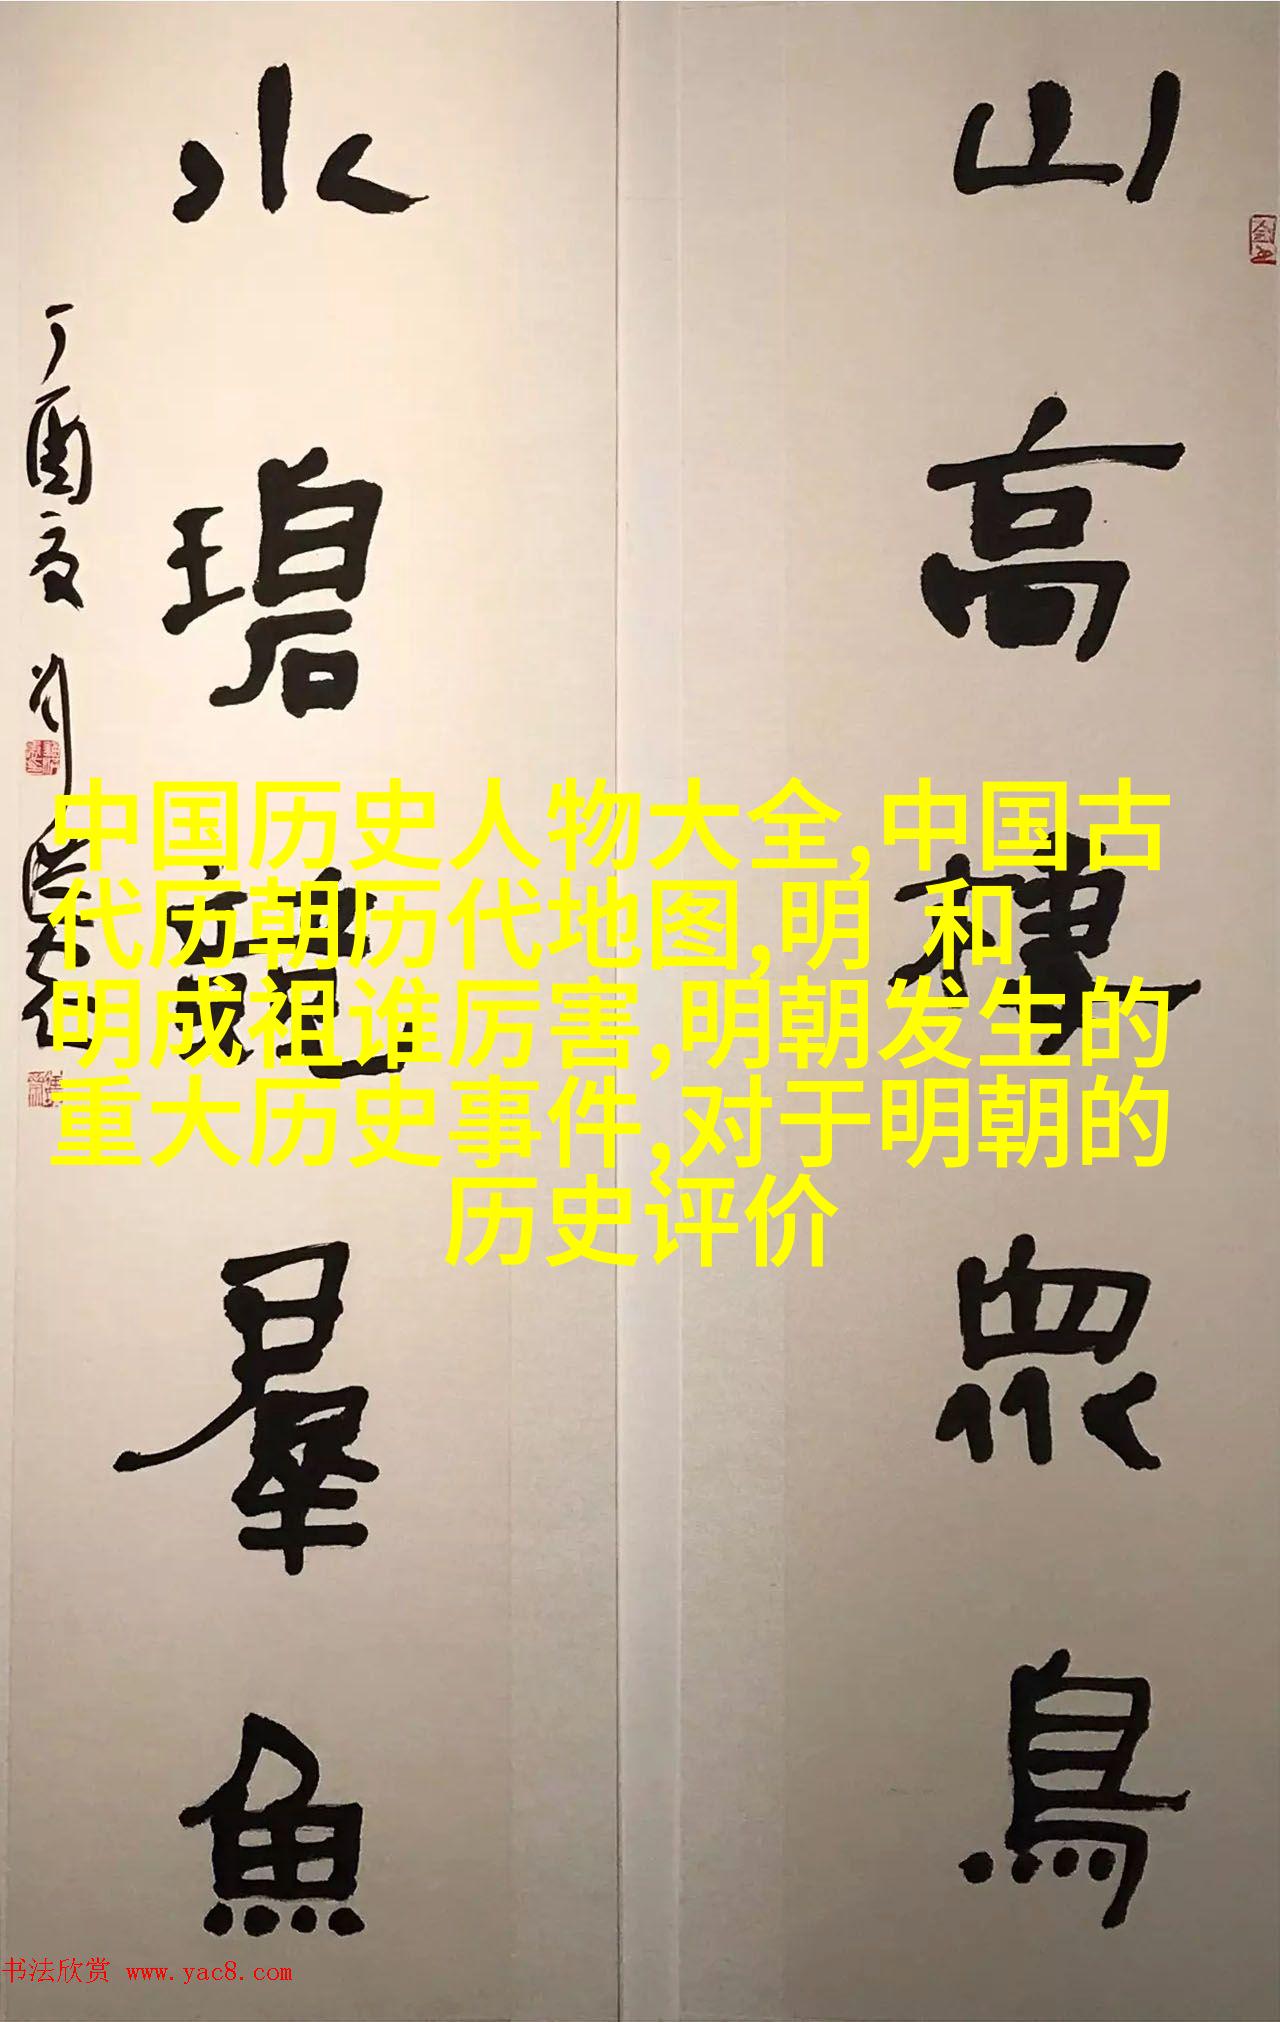 山高棲眾鳥
水碧羣魚
丁酉夏刘
中国历史人物大全,中国古
代历朝历代地图,明 和
明成祖谁厉害,明朝发生的
重大历史事件,对于明朝的
历史评价
书法欣赏 www.yac8.com